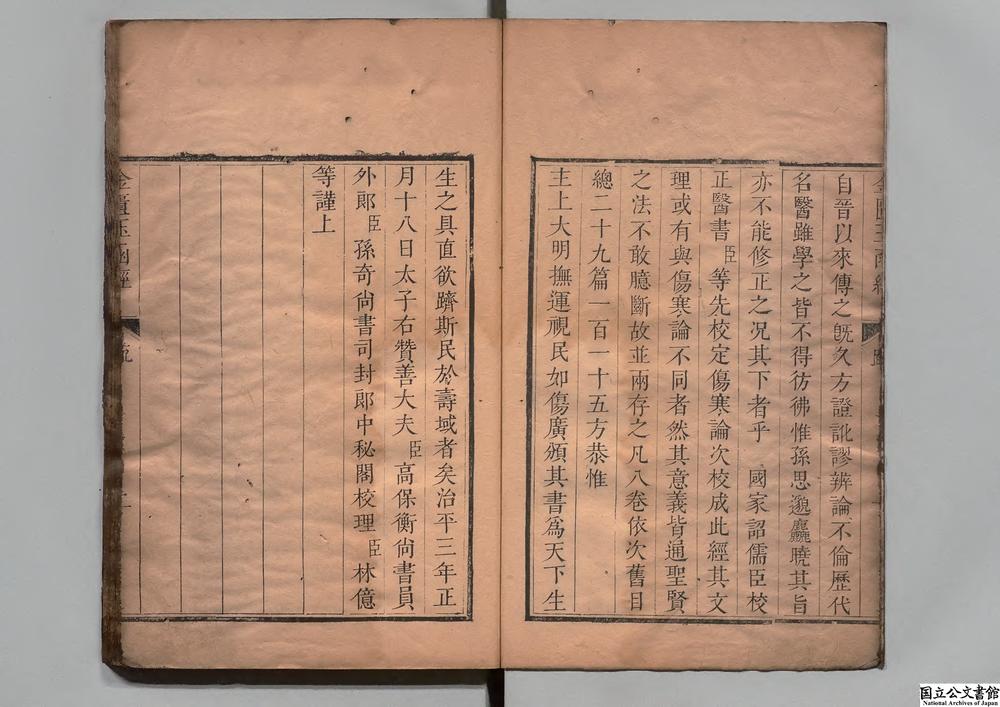 自晉以來傳之旣久方證訛謬辨論不倫歷代
名醫雖學之皆不得彷彿惟孫思邈麤曉其旨
亦不能修正之况其下者乎 國家詔儒臣校
正醫書臣等先校定傷寒論次校成此經其文
理或有與傷寒論不同者然其意義皆通聖賢
之法不敢臆斷故並兩存之凡八卷依次舊目
總二十九篇一百一十五方恭惟
主上大明撫運視民如傷廣頒其書爲天下生
生之具直欲躋斯民於壽域者矣治平三年正
月十八日太子右贊善大夫臣高保衡尙書員
外郎臣孫奇尙書司封郎中秘閣校理臣林億
等謹上
金匱玉函經
国立公文書館
National Archives of Japan